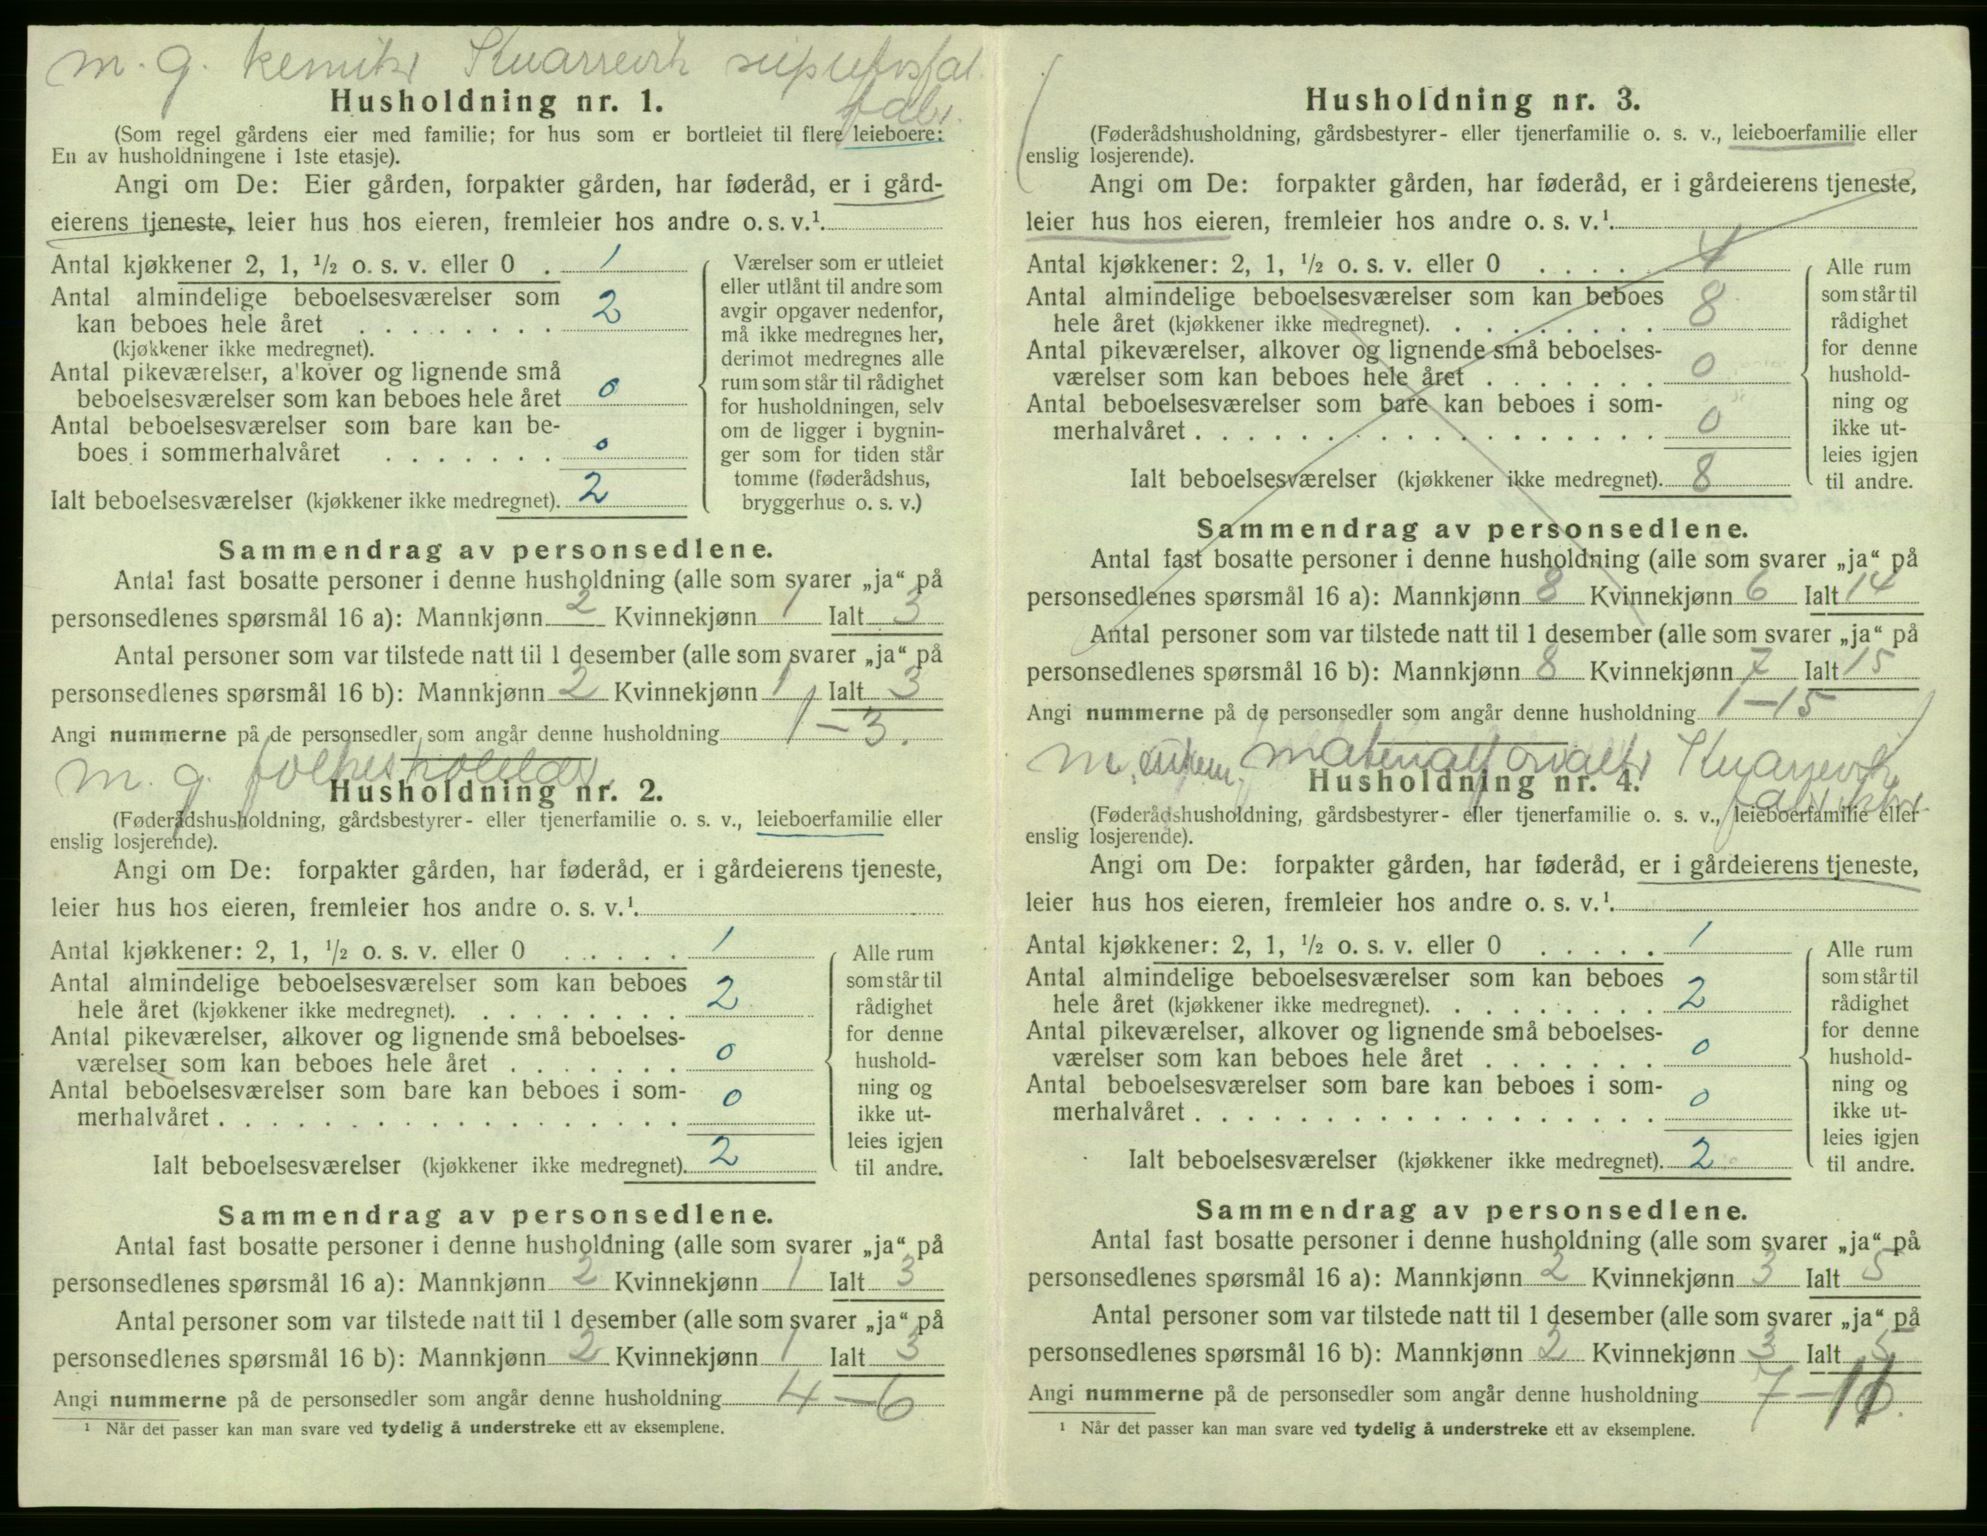 m. g. kemiker Knarrevik superfosfat
fabr.
Husholdning nr. 1.
(Som regel gårdens eier med familie; for hus som er bortleiet til flere leieboere:
En av husholdningene i 1ste etasje).
Angi om De: Eier gården, forpakter gården, har føderåd, er i gård-
eierens tjeneste, leier hus hos eieren, fremleier hos andre o. s. v.¹
Antal kjøkkener 2, 1, ½ o. s. v. eller 0 . 1
Antal almindelige beboelsesværelser som
kan beboes hele året . . . . . . . . 2
(kjøkkener ikke medregnet).
Antal pikeværelser, alkover og lignende små
beboelsesværelser som kan beboes hele året 0
Antal beboelsesværelser som bare kan be-
boes i sommerhalvåret . . . . . . . 0
Ialt beboelsesværelser (kjøkkener ikke medregnet). 2
Værelser som er utleiet
eller utlånt til andre som
avgir opgaver nedenfor,
må ikke medregnes her,
derimot medregnes alle
rum som står til rådighet
for husholdningen, selv
om de ligger i bygnin-
ger som for tiden står
tomme (føderådshus,
bryggerhus o. s. v.)
Sammendrag av personsedlene.
Antal fast bosatte personer i denne husholdning (alle som svarer „ja“ på
personsedlenes spørsmål 16 a): Mannkjønn 2 Kvinnekjønn 1 Ialt 3
Antal personer som var tilstede natt til 1 desember (alle som svarer „ja“ på
personsedlenes spørsmål 16 b): Mannkjønn 2 Kvinnekjønn 1 Ialt 3
Angi nummerne på de personsedler som angår denne husholdning 1-3.
m. g.
Husholdning nr. 2.
(Føderådshusholdning, gårdsbestyrer- eller tjenerfamilie o. s. v., leieboerfamilie eller
enslig losjerende).
Angi om De: forpakter gården, har føderåd, er i gårdeierens tjeneste,
leier hus hos eieren, fremleier hos andre o. s. v.¹
Antal kjøkkener: 2, 1, ½ o. s. v. eller 0 . . . . . 1
Antal almindelige beboelsesværelser som kan beboes
hele året (kjøkkener ikke medregnet). . . . . . . . . 2
Antal pikeværelser, alkover og lignende små beboelses-
værelser som kan beboes hele året . . . . . . . 0
Antal beboelsesværelser som bare kan beboes i som-
merhalvåret . . . . . . . . . . . . . . . . . . 0
Ialt beboelsesværelser (kjøkkener ikke medregnet). 2
Alle rum
som står til
rådighet
for denne
hushold-
ning og
ikke ut-
leies igjen
til andre.
Sammendrag av personsedlene.
Antal fast bosatte personer i denne husholdning (alle som svarer „ja“ på
personsedlenes spørsmål 16 a): Mannkjønn 2 Kvinnekjønn 1 Ialt 3
Antal personer som var tilstede natt til 1 desember (alle som svarer „ja“ på
personsedlenes spørsmål 16 b): Mannkjønn 2 Kvinnekjønn 1 Ialt 3
Angi nummerne på de personsedler som angår denne husholdning 4-6
¹ Når det passer kan man svare ved tydelig å understreke ett av eksemplene.
Husholdning nr. 3.
(Føderådshusholdning, gårdsbestyrer- eller tjenerfamilie o. s. v., leieboerfamilie eller
enslig losjerende).
Angi om De: forpakter gården, har føderåd, er i gårdeierens tjeneste,
leier hus hos eieren, fremleier hos andre o. s. v.¹
Antal kjøkkener: 2, 1, ½ o. s. v. eller 0 . . . . . 4
Antal almindelige beboelsesværelser som kan beboes
hele året (kjøkkener ikke medregnet). . . . . . . . . 8
Antal pikeværelser, alkover og lignende små beboelses-
værelser som kan beboes hele året . . . . . . . 0
Antal beboelsesværelser som bare kan beboes i som-
merhalvåret . . . . . . . . . . . . . . . . . . 0
Ialt beboelsesværelser (kjøkkener ikke medregnet). 8
Alle rum
som står til
rådighet
for denne
hushold-
ning og
ikke ut-
leies igjen
til andre.
Sammendrag av personsedlene.
Antal fast bosatte personer i denne husholdning (alle som svarer „ja“ på
personsedlenes spørsmål 16 a): Mannkjønn 8 Kvinnekjønn 6 Ialt 14
Antal personer som var tilstede natt til 1 desember (alle som svarer „ja“ på
personsedlenes spørsmål 16 b): Mannkjønn 8 Kvinnekjønn 7 Ialt 15
Angi nummerne på de personsedler som angår denne husholdning 1-15
m. materialforvalter Knarrevik
Husholdning nr. 4.
(Føderådshusholdning, gårdsbestyrer- eller tjenerfamilie o. s. v., leieboerfamilie eller
enslig losjerende).
Angi om De: forpakter gården, har føderåd, er i gårdeierens tjeneste,
leier hus hos eieren, fremleier hos andre o. s. v.¹
Antal kjøkkener: 2, 1, ½ o. s. v. eller 0 . . . . . 1
Antal almindelige beboelsesværelser som kan beboes
hele året (kjøkkener ikke medregnet). . . . . . . . . 2
Antal pikeværelser, alkover og lignende små beboelses-
værelser som kan beboes hele året . . . . . . . 0
Antal beboelsesværelser som bare kan beboes i som-
merhalvåret . . . . . . . . . . . . . . . . . . 0
Ialt beboelsesværelser (kjøkkener ikke medregnet). 2
Alle rum
som står til
rådighet
for denne
hushold-
ning og
ikke ut-
leies igjen
til andre.
Sammendrag av personsedlene.
Antal fast bosatte personer i denne husholdning (alle som svarer „ja“ på
personsedlenes spørsmål 16 a): Mannkjønn 2 Kvinnekjønn 3 Ialt 5
Antal personer som var tilstede natt til 1 desember (alle som svarer „ja“ på
personsedlenes spørsmål 16 b): Mannkjønn 2 Kvinnekjønn 3 Ialt 5
Angi nummerne på de personsedler som angår denne husholdning 7-11
¹ Når det passer kan man svare ved tydelig å understreke ett av eksemplene.